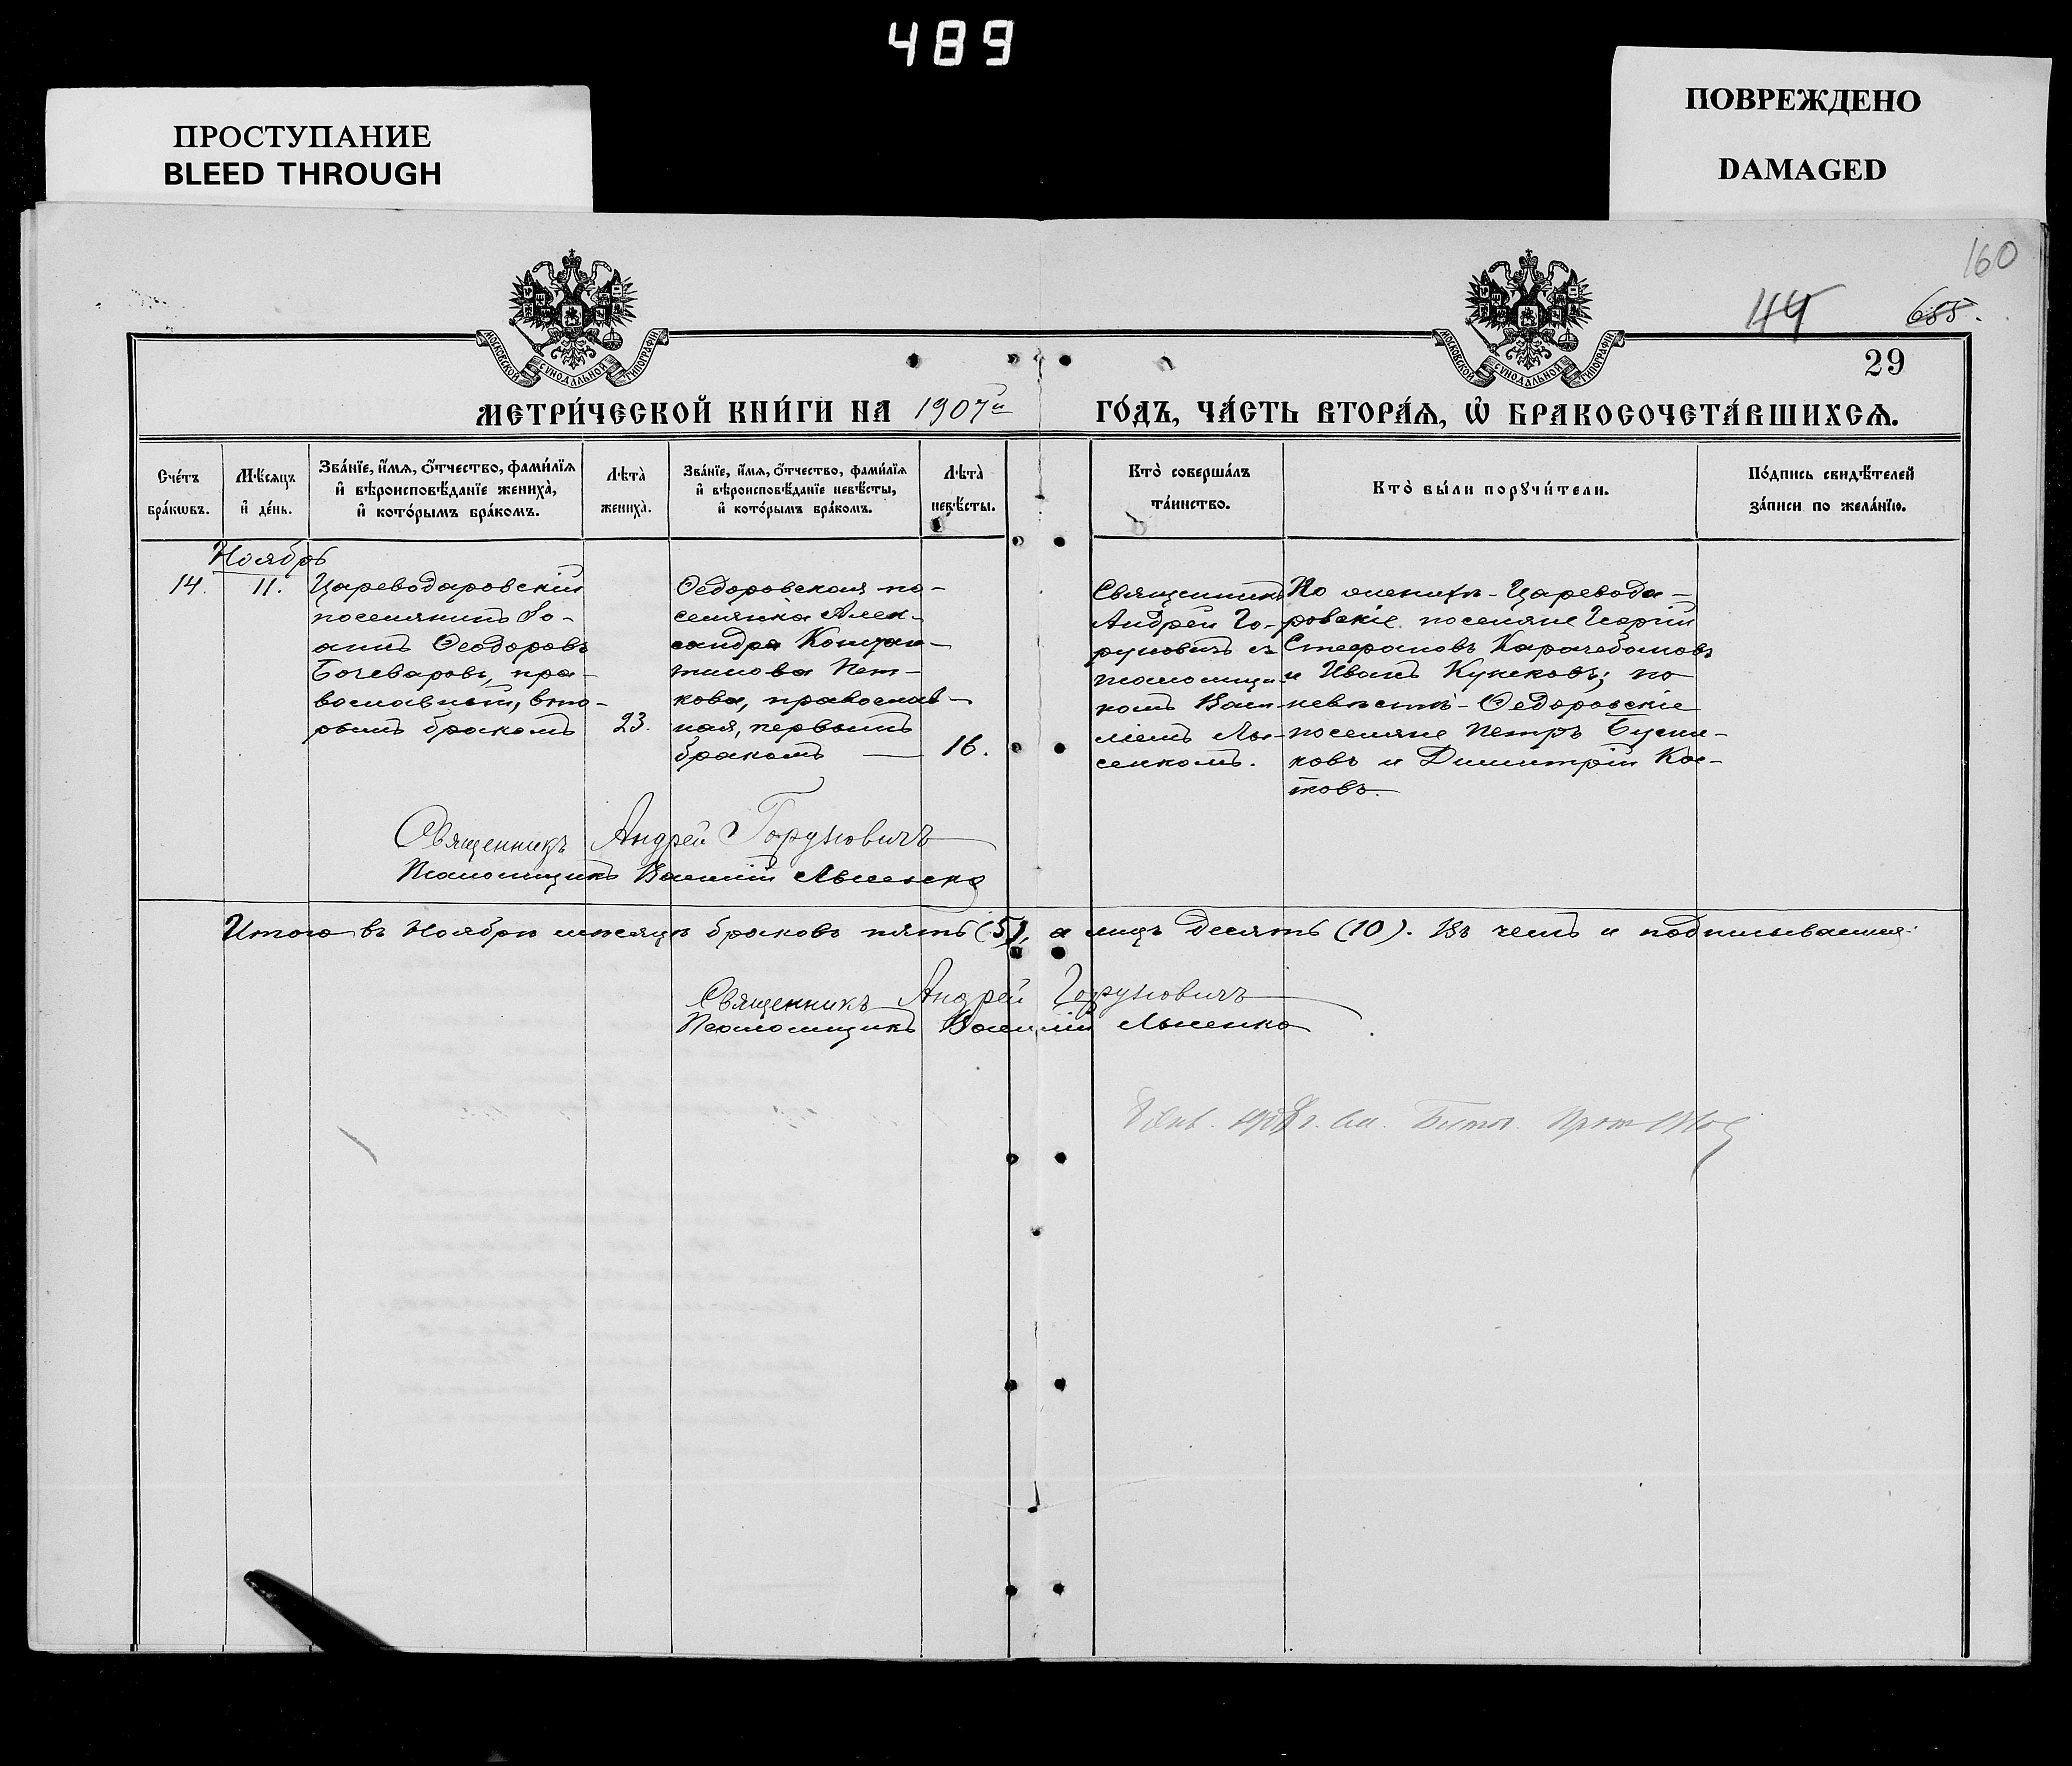 489
ПРОСТУПАНИЕ
BLEED THROUGH
ПОВРЕЖДЕНО
DAMAGED
160
655.
29
МОСКОВСКОЙ СѴНОДАЛЬНОЙ ТИПОГРАФІИ
МОСКОВСКОЙ СѴНОДАЛЬНОЙ ТИПОГРАФІИ
МЕТРИ́ЧЕСКОЙ КНИ́ГИ НА 1907й ГО́ДЪ, ЧА́СТЬ ВТОРА́Ѧ, Ѡ҆ БРАКОСОЧЕТА́ВШИХСѦ.
Сче́тъ
бра́кѡвъ.
Мѣ́сяцъ
и҆ де́нь.
Зва́нїе, и҆́мѧ, ѻ҆́тчество, фами́лїѧ
и҆ вѣроисповѣ́данїе жениха̀,
и҆ кото́рымъ бра́комъ.
Лѣта̀
жениха̀.
Зва́нїе, и҆́мѧ, ѻ҆́тчество, фами́лїѧ
и҆ вѣроисповѣ́данїе невѣ́сты,
и҆ кото́рымъ бра́комъ.
Лѣта̀
невѣ́сты.
Кто̀ соверша́лъ
та́инство.
Кто̀ бы́ли порꙋчи́тели.
По́дпись свидѣ́телей
за́писи по жела́нїю.
Ноябрь
14.
11.
Цареводаровскій
поселянинъ Іо-
аннъ Ѳеодоровъ
Бочеваровъ, пра-
вославный, вто-
рымъ бракомъ
23.
Ѳедоровская по-
селянка Алек-
сандра Констан-
тинова Пет-
кова, православ-
ная, первымъ
бракомъ
16.
Священникъ
Андрей Го-
руновичъ съ
псаломщи-
комъ Васи-
ліемъ Лы-
сенкомъ.
По женихѣ - Царевода-
ровскіе поселяне Георгій
Стефановъ Карачебановъ
и Иванъ Кунковъ; по
невѣстѣ - Ѳедоровскіе
поселяне Петръ
ковъ и Димитрій Кос-
товъ.
Священникъ Андрей Горуновичъ
Псаломщикъ Василій Лысенко
Итого въ Ноябрѣ мѣсяцѣ браковъ пять (5), а лицъ десять (10). Въ чемъ и подписываемся:
Священникъ Андрей Горуновичъ
Псаломщикъ Василій Лысенко